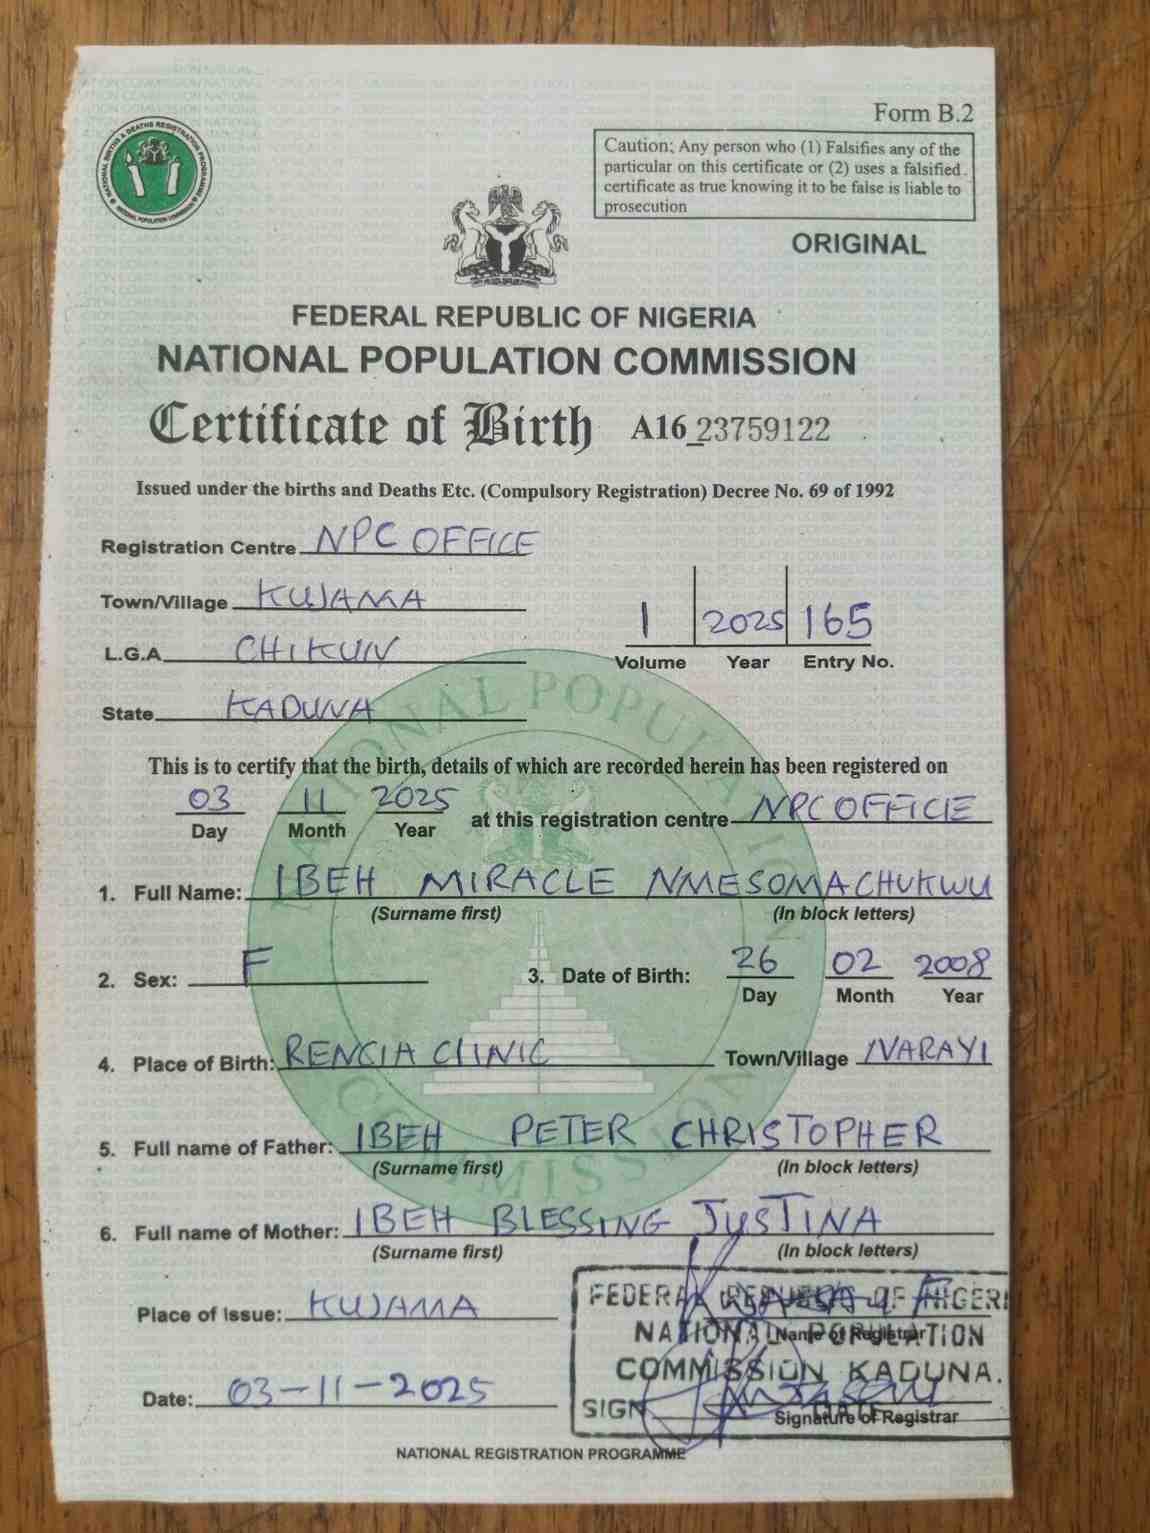 Form B.2
Caution; Any person who (1) Falsifies any of the
particular on this certificate or (2) uses a falsified
certificate as true knowing it to be false is liable to
prosecution
NATIONAL BIRTHS & DEATHS REGISTRATION PROGRAMME
NATIONAL POPULATION COMMISSION
ORIGINAL
FEDERAL REPUBLIC OF NIGERIA
NATIONAL POPULATION COMMISSION
Certificate of Birth A16 23759122
Issued under the births and Deaths Etc. (Compulsory Registration) Decree No. 69 of 1992
Registration Centre NPC OFFICE
Town/Village KUJAMA
L.G.A CHIKUN
State KADUNA
1 2025 165
Volume Year Entry No.
This is to certify that the birth, details of which are recorded herein has been registered on
03 11 2025 at this registration centre NPC OFFICE
Day Month Year
1. Full Name: IBEH MIRACLE NMESOMACHUKWU
(Surname first) (In block letters)
2. Sex: F 3. Date of Birth: 26 02 2008
Day Month Year
4. Place of Birth: RENCIA CLINIC Town/Village NARAYI
5. Full name of Father: IBEH PETER CHRISTOPHER
(Surname first) (In block letters)
6. Full name of Mother: IBEH BLESSING JUSTINA
(Surname first) (In block letters)
Place of Issue: KUJAMA
Name of Registrar
Date: 03-11-2025
Signature of Registrar
FEDERAL REPUBLIC OF NIGERI
NATIONAL POPULATION
COMMISSION KADUNA.
SIGN DATE
NATIONAL REGISTRATION PROGRAMME
NATIONAL POPULATION COMMISSION